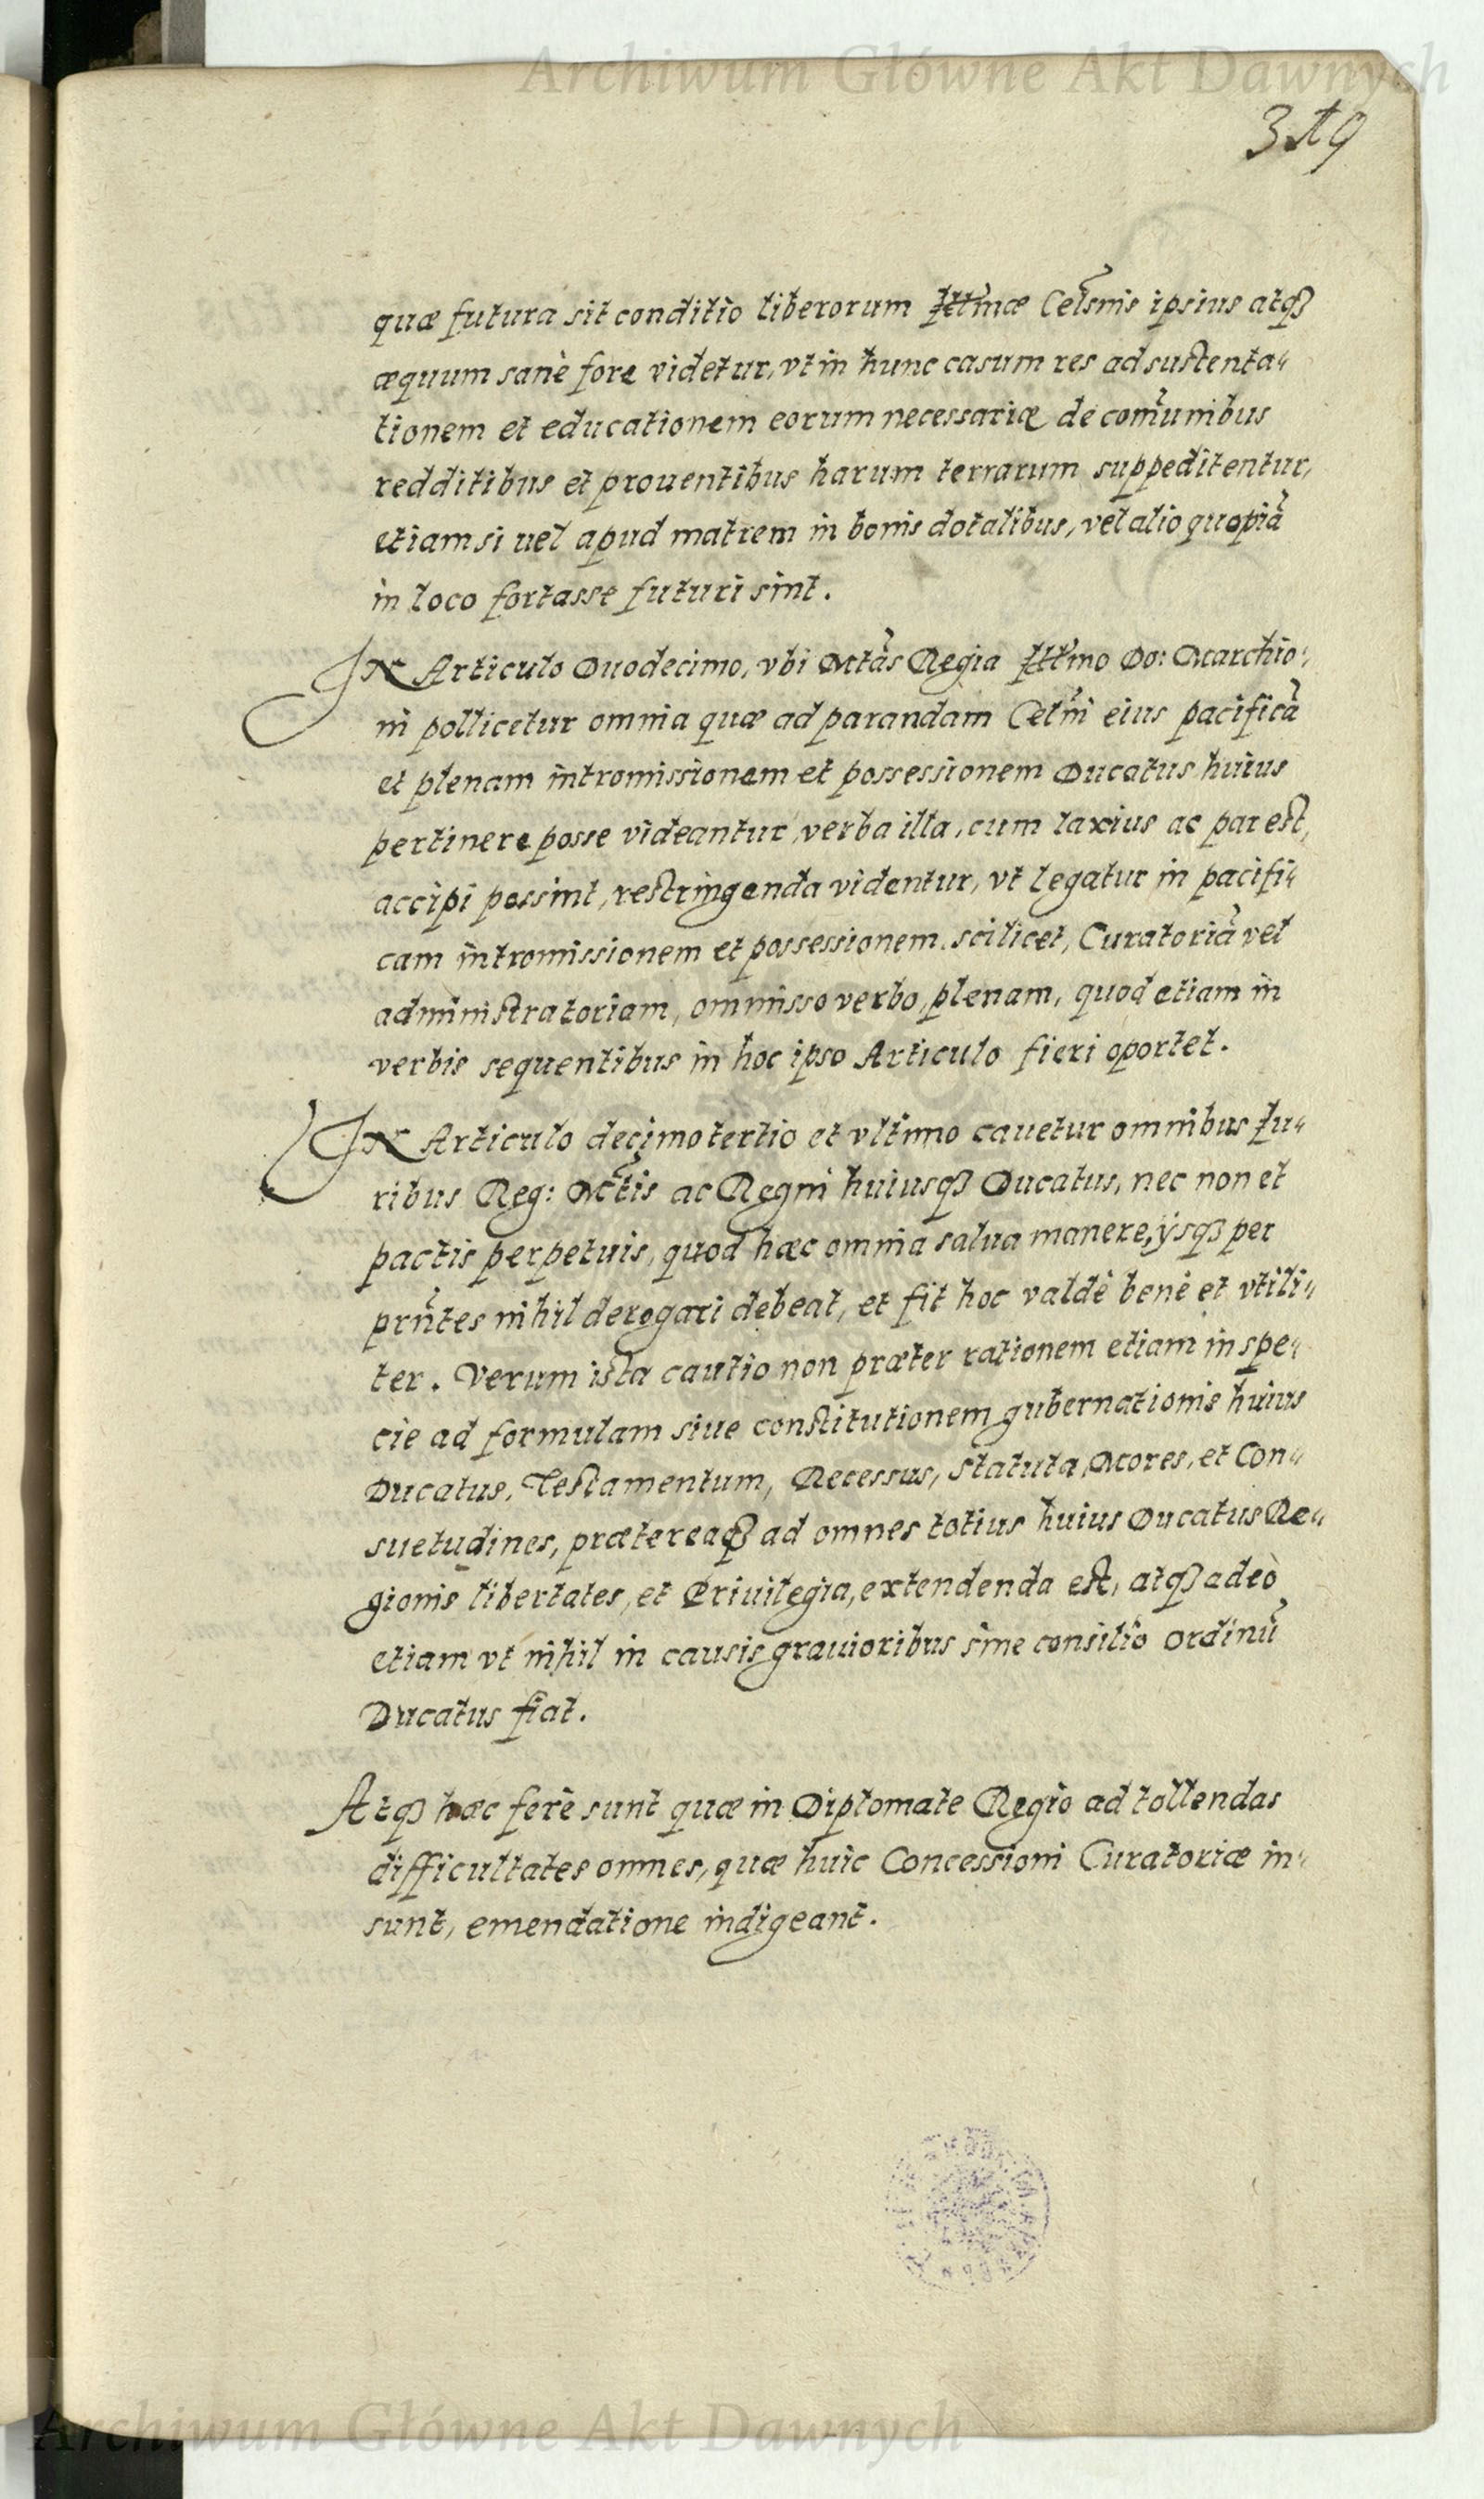 Archiwum Główne Akt Dawnych
quæ futura sit conditio liberorum Illmæ Celsnis ipsius atqꝫ
æquum sanè fore videtur, vt in hunc casum res ad sustenta-
tionem et educationem eorum necessariæ de com̃unibus
redditibus et prouentibus harum terrarum suppeditentur,
etiamsi uel apud matrem in bonis dotalibus, vel alio quopiã
in loco fortasse futuri sint.
IN Articulo Duodecimo, vbi Mtãs Regia Illmo Do: Marchio:
ni pollicetur omnia quæ ad parandam Celñi eius pacificã
et plenam intromissionem et possessionem Ducatus huius
pertinere posse videantur, verba illa, cum laxius ac par est,
accipi possint, restringenda videntur, vt legatur in pacifi-
cam intromissionem et possessionem. scilicet, Curatoriã vel
administratoriam, ommisso verbo plenam, quod etiam in
verbis sequentibus in hoc ipso Articulo fieri oportet.
IN Articulo decimotertio et vltimo cauetur omnibus Iu-
ribus Reg: Mtis ac Regni huiusqꝫ Ducatus, nec non et
pactis perpetuis, quod hæc omnia salua manere, ÿsqꝫ per
prñtes nihil derogari debeat, et fit hoc valdè benè et vtili-
ter. Verum ista cautio non præter rationem etiam in spe-
cie ad formulam siue constitutionem gubernationis huius
Ducatus, Testamentum, Recessus, Statuta, Mores, et Con-
suetudines, prætereaqꝫ ad omnes totius huius Ducatus Re-
gionis libertates, et Priuilegia, extendenda est, atqꝫ adeò
etiam vt nihil in causis grauioribus sine consilio Ordinũ
Ducatus fiat.
Atqꝫ hæc ferè sunt quæ in Diplomate Regio ad tollendas
difficultates omnes, quæ huic Concessioni Curatoriæ in-
sunt, emendatione indigeant.
Archiwum Główne Akt Dawnych